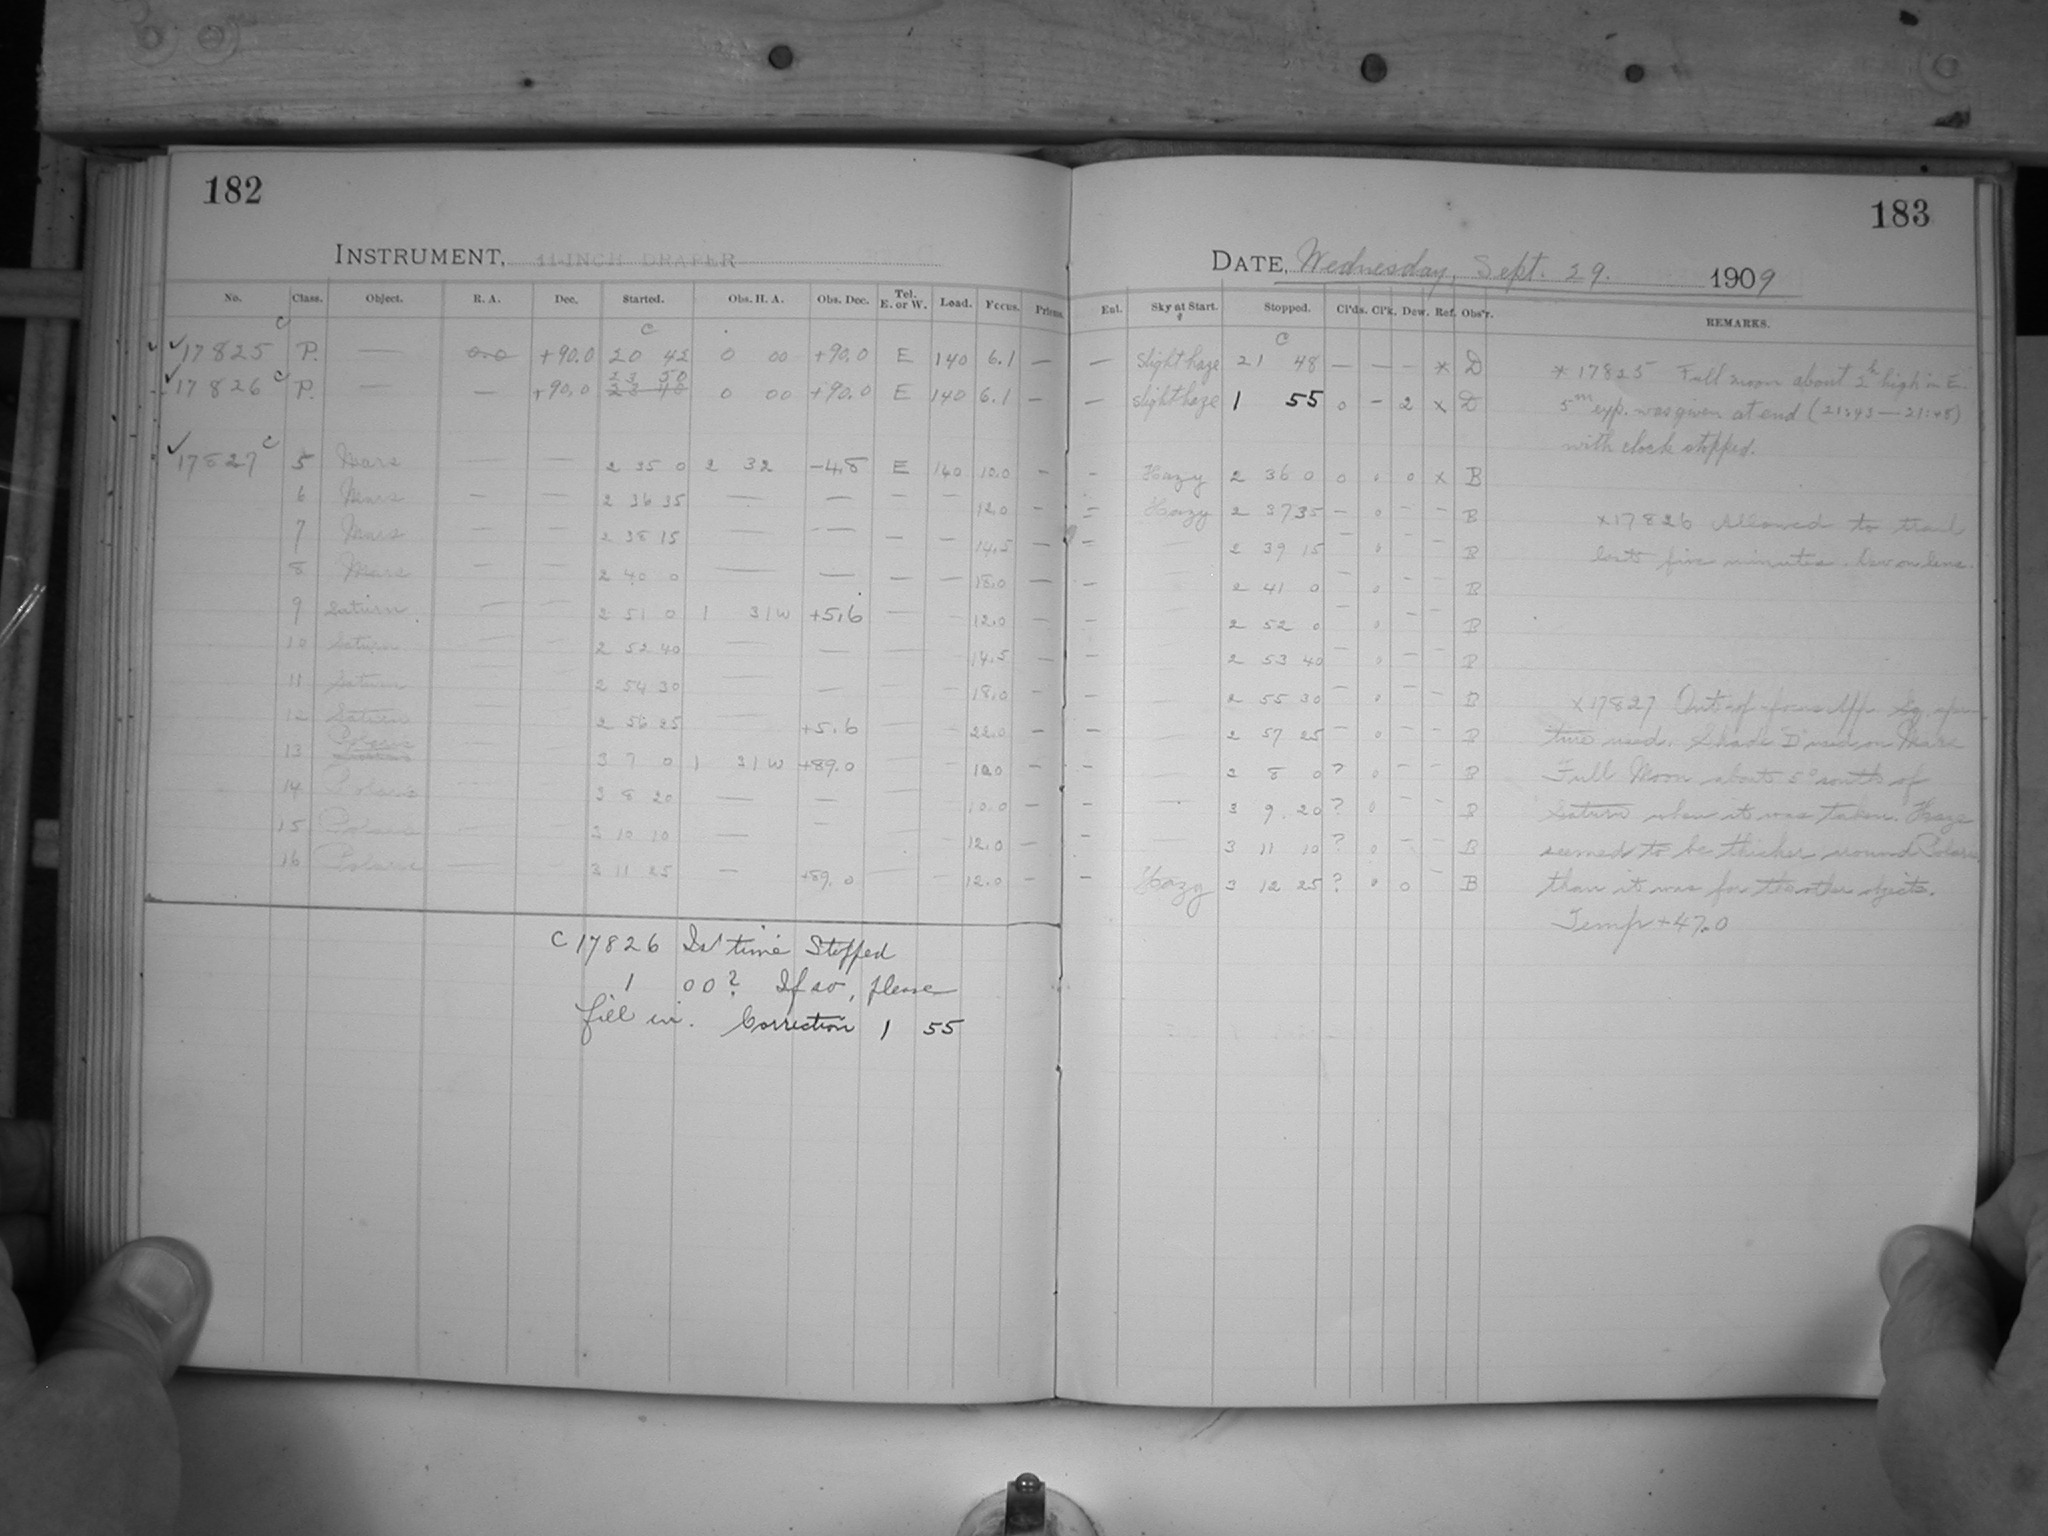 182
INSTRUMENT, 11-INCH DRAPER
No. Class. Object. R. A. Dec. Started. Obs. H. A. Obs. Dec. Tel. E. or W. Load. Focus. Prisms.
C C
17825 P. — 0.0 +90.0 20 42 0 00 +90.0 E 140 6.1 —
23 50
17826 C P. — — +90.0 23 40 0 00 +90.0 E 140 6.1 —
17827 C 5 Mars — — 2 35 0 2 32 -4.8 E 140 10.0 —
6 Mars — — 2 36 35 — — — — 12.0 —
7 Mars — — 2 38 15 — — — — 14.5 —
8 Mars — — 2 40 0 — — — — 18.0 —
9 Saturn — — 2 51 0 1 31 W +5.6 — — 12.0 —
10 Saturn — — 2 52 40 — — — — 14.5 —
11 Saturn — — 2 54 30 — — — — 18.0 —
12 Saturn — — 2 56 25 — +5.6 — — 22.0 —
13 Polaris — — 3 7 0 1 31 W +89.0 — — 10.0 —
14 Polaris — — 3 8 20 — — — — 10.0 —
15 Polaris — — 3 10 10 — — — — 12.0 —
16 Polaris — — 3 11 25 — +89.0 — — 12.0 —
C 17826 Is time Stopped
1 00? If so, please
fill in. Correction 1 55
183
DATE, Wednesday, Sept. 29. 1909
Enl. Sky at Start. Stopped. Cl'ds. Cl'k. Dew. Ref. Obs'r. REMARKS.
C
— Slight haze 21 48 — — — * D
— slight haze 1 55 0 — 2 x D
— Hazy 2 36 0 0 0 0 x B
— Hazy 2 37 35 — 0 — — B
— — 2 39 15 — 0 — — B
— — 2 41 0 — 0 — — B
— — 2 52 0 — 0 — — B
— — 2 53 40 — 0 — — B
— — 2 55 30 — 0 — — B
— — 2 57 25 — 0 — — B
— — 3 8 0 ? 0 — — B
— — 3 9 20 ? 0 — — B
— — 3 11 10 ? 0 — — B
— Hazy 3 12 25 ? 0 0 — B
* 17825 Full moon about 2h high in E.
5m exp. was given at end (21:43—21:48)
with clock stopped.
x 17826 Allowed to trail
last five minutes. Dew on lens.
x 17827 Out-of-focus App. Sq. aper-
ture used. Shade "D" used on Mars
Full Moon about 5° south of
Saturn when it was taken. Haze
seemed to be thicker around Polaris
than it was for the other objects.
Temp +47.0